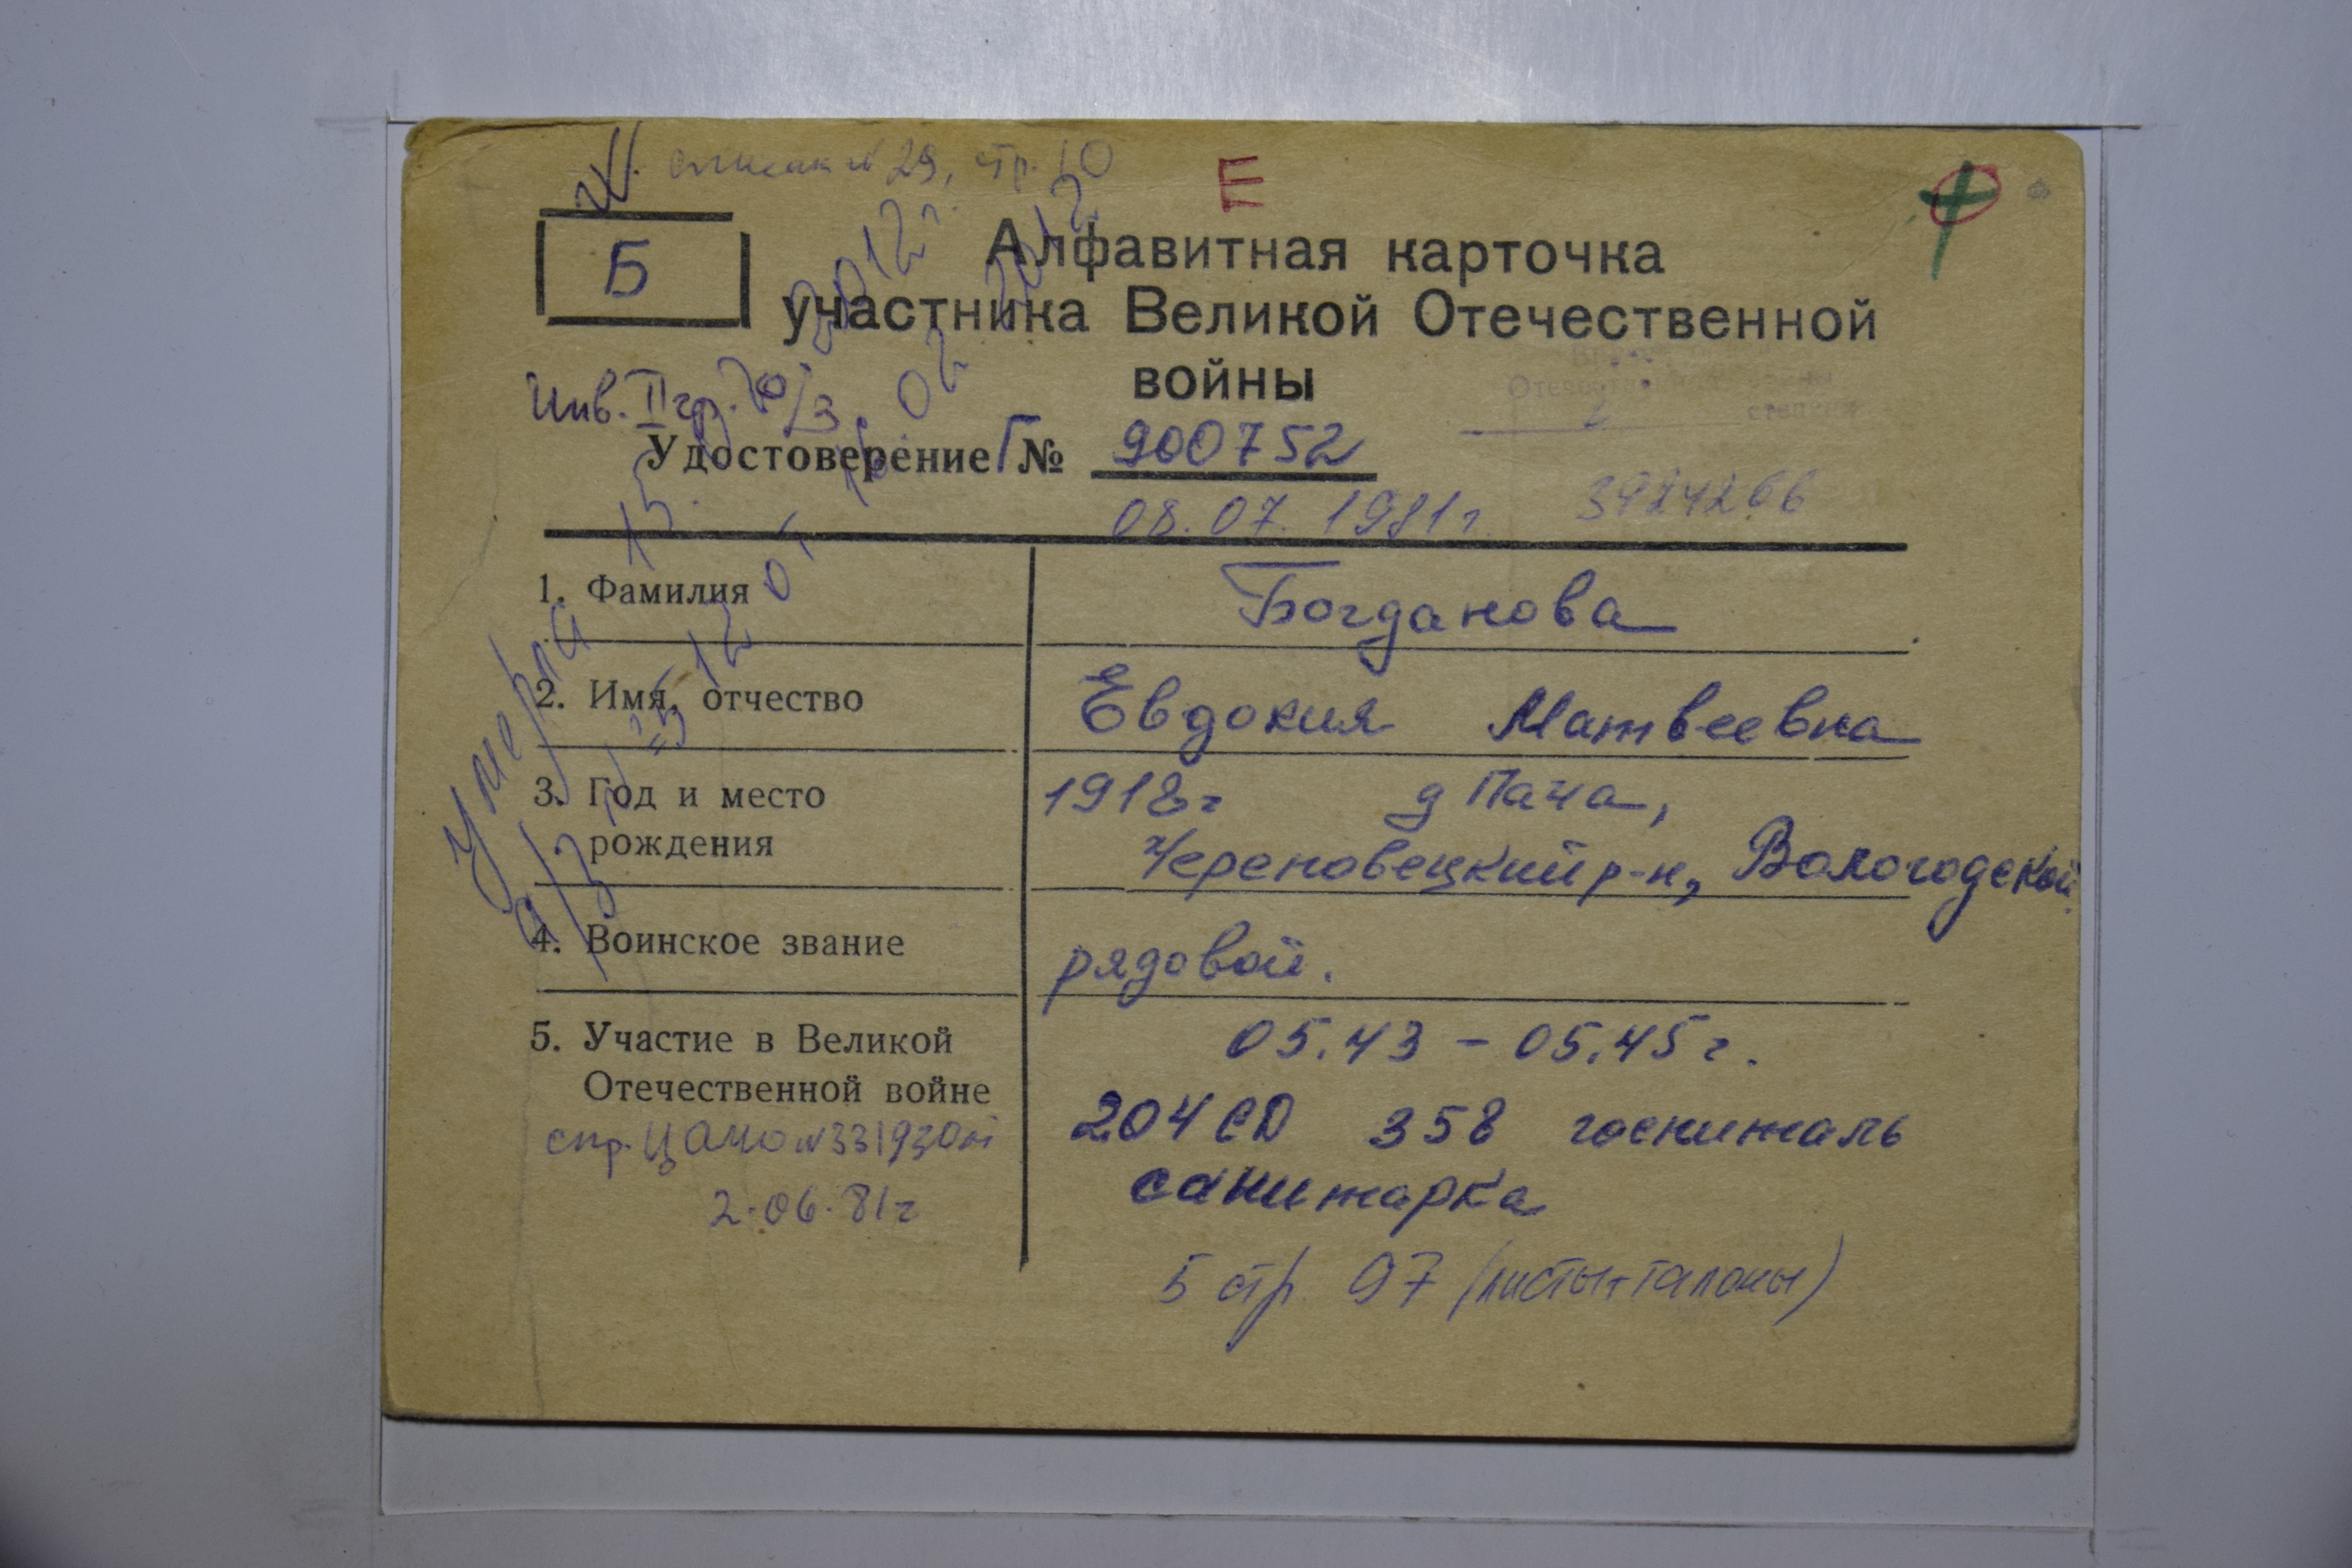 список № 29, стр. 10
Е
Б
Алфавитная карточка
участника Великой Отечественной
войны
Инв. II гр.
Отечественной войны
степени
Удостоверение Г № 900752
08.07.1981г. 3924266
1. Фамилия Богданова
2. Имя, отчество Евдокия Матвеевна
3. Год и место 1918г д Пача,
рождения Череповецкий р-н, Вологодской
4. Воинское звание рядовой.
5. Участие в Великой 05.43 - 05.45г.
Отечественной войне 204 СД 358 госпиталь
спр. ЦАМО № 331930
санитарка
2.06.81г
5 стр 97 (листы+талоны)
умерла 15. 2012г.
а/з № 25 12 от 16.02 2012